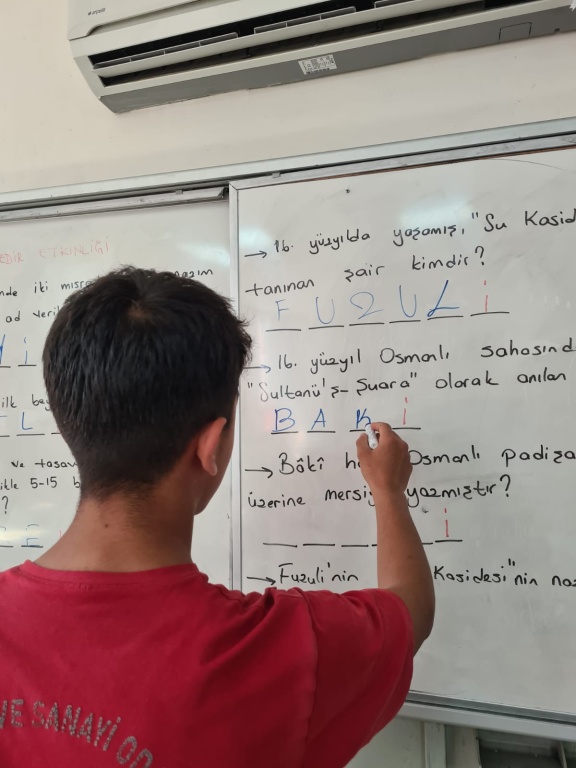 ETKİNLİĞİ
iki
ad
İ
ilk
L
ve tasav
5-15
?
E
→ 16. yüzyılda yaşamış, "Su Kasid
tanınan şair kimdir?
F U Z U L İ
→ 16. yüzyıl Osmanlı sahasınd
"Sultanü'ş-Şuara" olarak anılan
B A K İ
→ Bâkî Osmanlı padişa
üzerine mersiy yazmıştır?
İ
→ Fuzuli'nin Kasidesi"nin na
VE SANAYİ OD